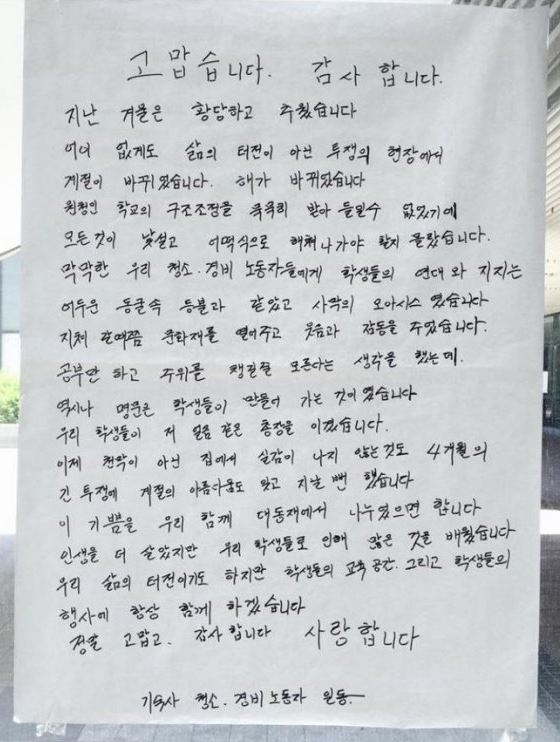 고맙습니다. 감사 합니다.
지난 겨울은 황당하고 추웠습니다
어이 없게도 삶의 터전이 아닌 투쟁의 현장에서
계절이 바뀌었습니다. 해가 바뀌었습니다
원청인 학교의 구조조정을 묵묵히 받아 들일수 없었기에
모든것이 낯설고 어떡식으로 헤쳐나가야 할지 몰랐습니다.
막막한 우리 청소.경비 노동자들에게 학생들의 연대와 지지는
어두운 동굴속 등불과 같았고 사막의 오아시스 였습니다
지쳐 갈때쯤 문화재를 열어주고 웃음과 감동을 주었습니다.
공부만 하고 주위를 챙길줄 모른다는 생각을 했는데.
역시나 명문은 학생들이 만들어 가는 것이었습니다
우리 학생들이 저 얼음 같은 총장을 이겼습니다.
이제 천막이 아닌 집에서 실감이 나지 않는것도 4개월의
긴 투쟁에 계절의 아름다움도 잊고 지날 뻔 했습니다
이 기쁨을 우리 함께 대동재에서 나누었으면 합니다
인생을 더 살았지만 우리 학생들로 인해 많은 것을 배웠습니다
우리 삶의 터전이기도 하지만 학생들의 교육 공간. 그리고 학생들의
행사에 항상 함께 하겠습니다
정말 고맙고. 감사 합니다 사랑합니다
기숙사 청소.경비 노동자 일동.